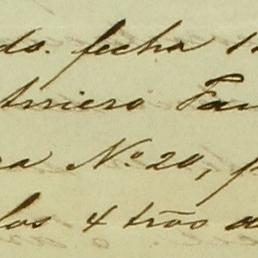 ds. fecha 1
Arriero Fau
ra No. 20, p
los 4 trõs d